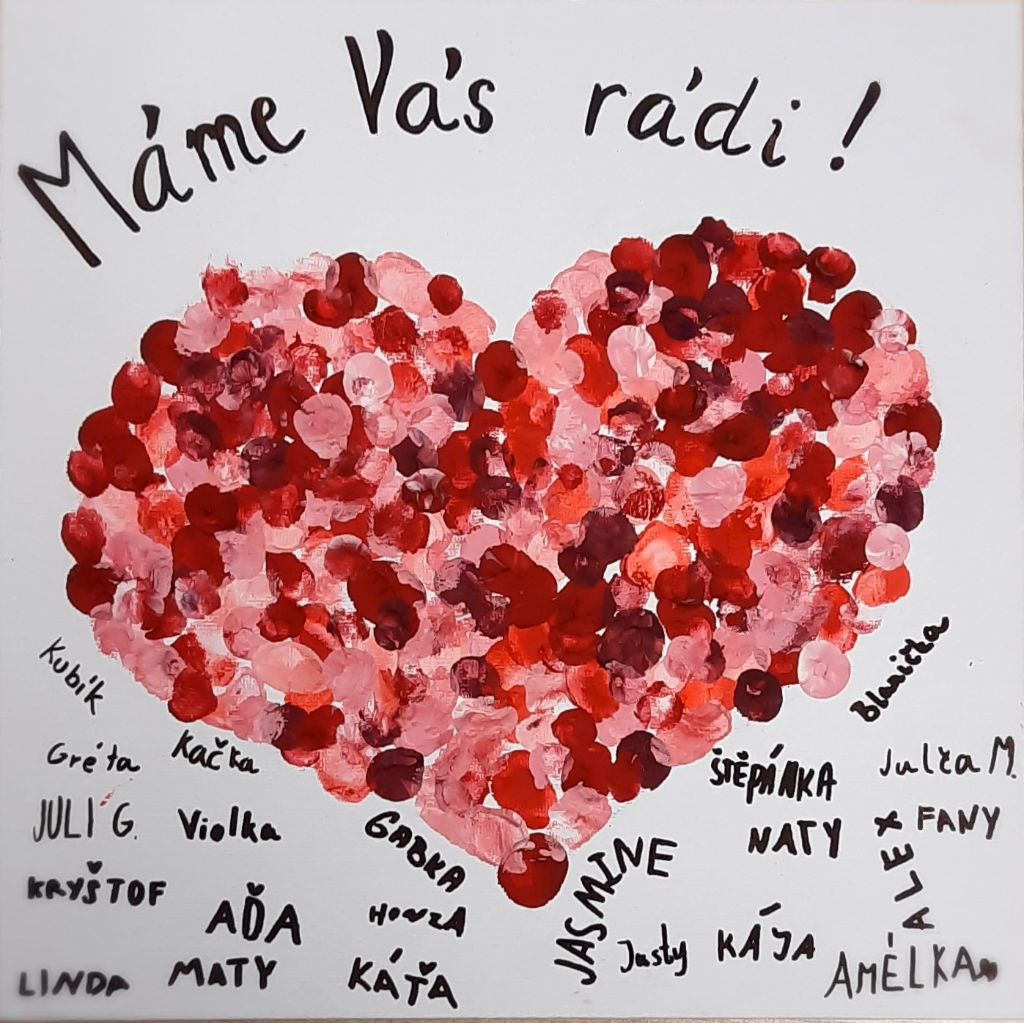 Máme Vás rádi!
Kubík
Blanička
Gréta
Kačka
ŠTĚPÁNKA
Julča M.
JULI G.
Violka
GABKA
NATY
ALEX
FANY
KRYŠTOF
AĎA
HONZA
JASMINE
Justy
KÁJA
LINDA
MATY
KÁŤA
AMÉLKA